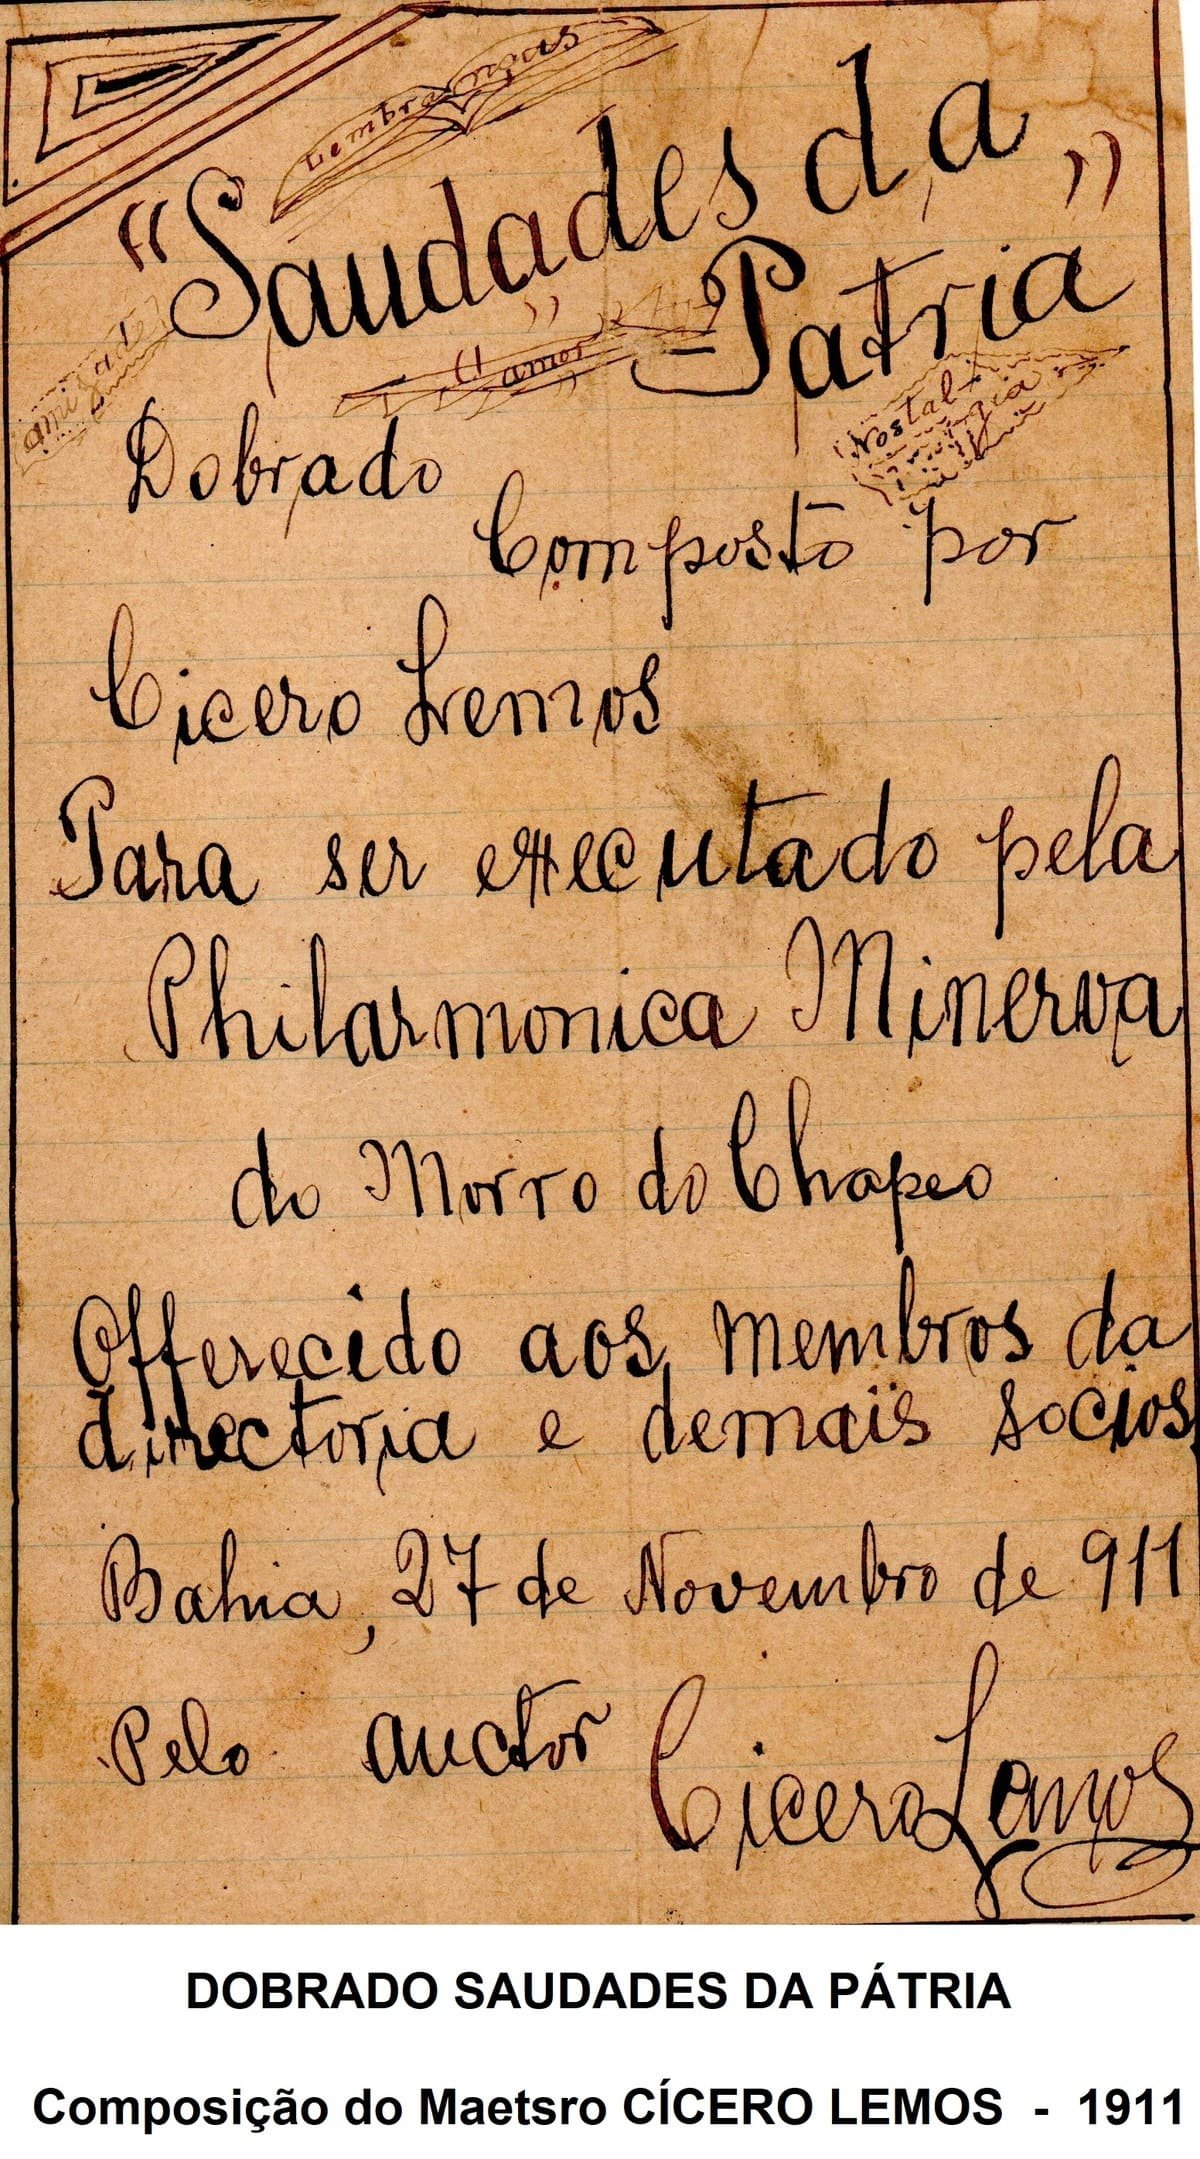 Lembranças
"Saudades da
Patria"
amisade
"amor"
Nostal-
gia
Dobrado
Composto por
Cicero Lemos
Para ser executado pela
Philarmonica Minerva
do Morro do Chapeo
Offerecido aos membros da
directoria e demais socios
Bahia, 27 de Novembro de 911
Pelo auctor Cicero Lemos
DOBRADO SAUDADES DA PÁTRIA
Composição do Maetsro CÍCERO LEMOS - 1911